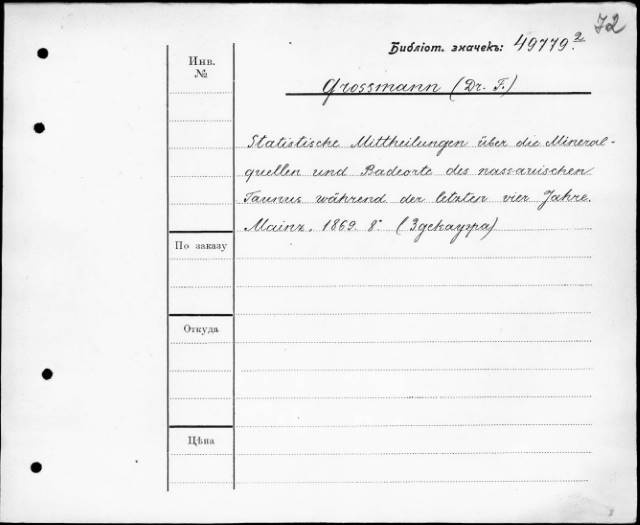 72
Библіот. значекъ: 49779.²
Grossmann (Dr. F.)
Инв.
№
Statistische Mittheilungen über die Mineral-
quellen und Badeorte des nassauischen
Taunus während der letzten vier Jahre.
Mainz. 1869. 8°. (Здекауэра)
По заказу
Откуда
Цѣна